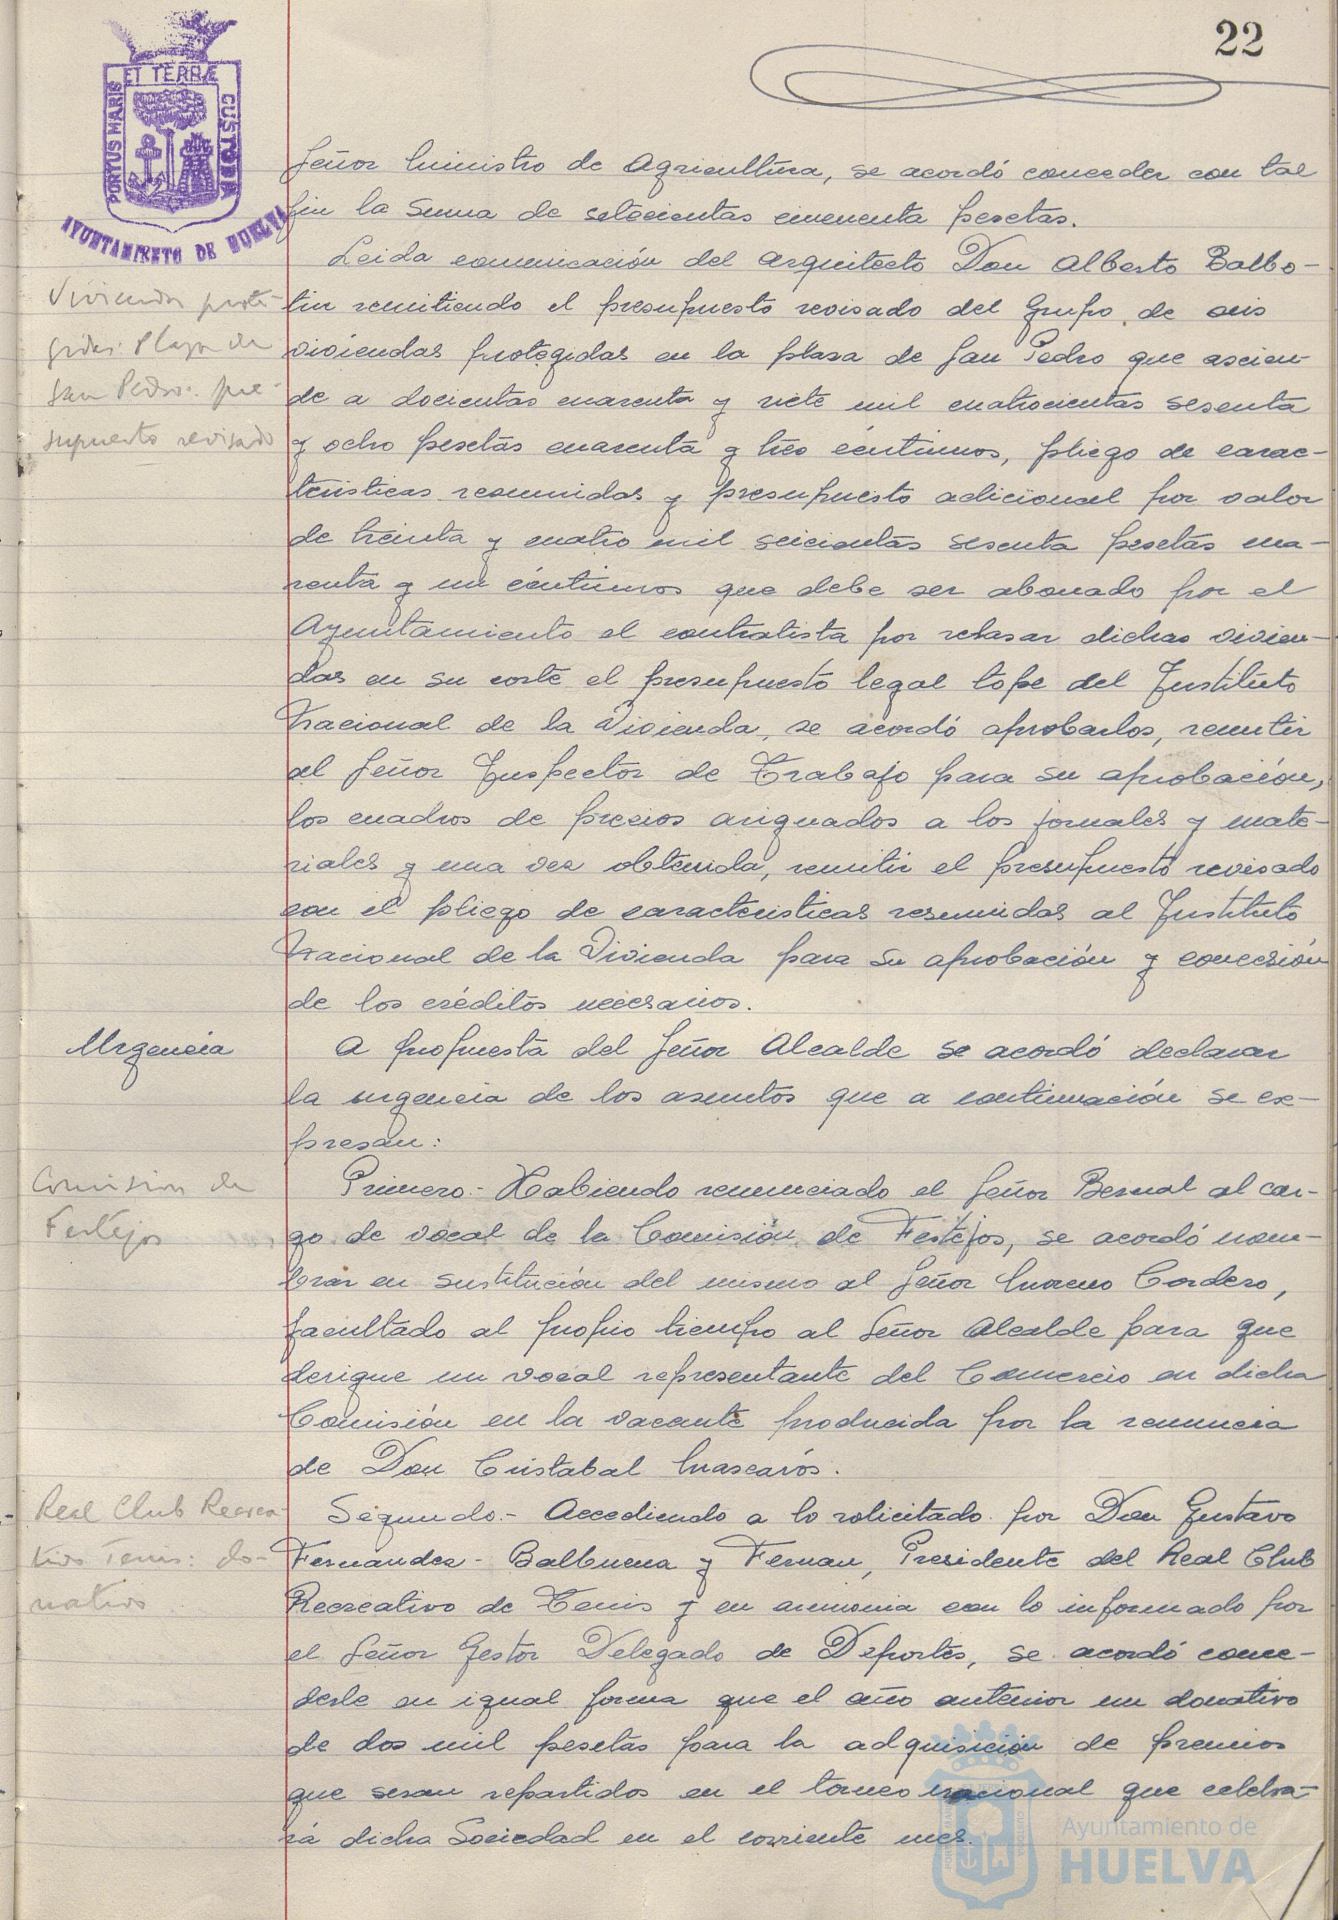 22
PORTUS MARIS
ET TERRÆ
CUSTODIA
AYUNTAMIENTO DE HUELVA
Señor Ministro de Agricultura, se acordó conceder con tal
fin la suma de setecientas cincuenta pesetas.
Leida comunicación del arquitecto Don Alberto Balbo-
tin remitiendo el presupuesto revisado del Grupo de seis
viviendas protegidas en la plaza de San Pedro que ascien-
de a docientas cuarenta y siete mil cuatrocientas sesenta
y ocho pesetas cuarenta y tres céntimos, pliego de carac-
terísticas resumidas y presupuesto adicional por valor
de treinta y cuatro mil seicientas sesenta pesetas cua-
renta y un céntimos que debe ser abonado por el
Ayuntamiento al contratista por rebasar dichas vivien-
das en su coste el presupuesto legal tope del Instituto
Nacional de la Vivienda, se acordó aprobarlos, remitir
al Señor Inspector de Trabajo para su aprobación,
los cuadros de precios asignados a los jornales y mate-
riales y una vez obtenida, remitir el presupuesto revisado
con el pliego de características resumidas al Instituto
Nacional de la Vivienda para su aprobación y concesión
de los créditos necesarios.
Viviendas prote-
gidas Plaza de
San Pedro: pre-
supuesto revisado
Urgencia
A propuesta del Señor Alcalde se acordó declarar
la urgencia de los asuntos que a continuación se ex-
presan:
Comision de
Festejos
Primero.- Habiendo renunciado el Señor Bernal al car-
go de vocal de la Comisión de Festejos, se acordó nom-
brar en sustitución del mismo al Señor Moreno Cordero,
facultado al propio tiempo al Señor Alcalde para que
designe un vocal representante del Comercio en dicha
Comisión en la vacante producida por la renuncia
de Don Cristabal Mascarós.
Real Club Recrea-
tivo Tenis: do-
nativo
Segundo.- Accediendo a lo solicitado por Don Gustavo
Fernandez-Balbuena y Fernan, Presidente del Real Club
Recreativo de Tenis y en armonia con lo informado por
el Señor Gestor Delegado de Deportes, se acordó conce-
derle en igual forma que el año anterior un donativo
de dos mil pesetas para la adquisición de premios
que seran repartidos en el torneo nacional que celebra-
rá dicha Sociedad en el corriente mes.
Ayuntamiento de
HUELVA